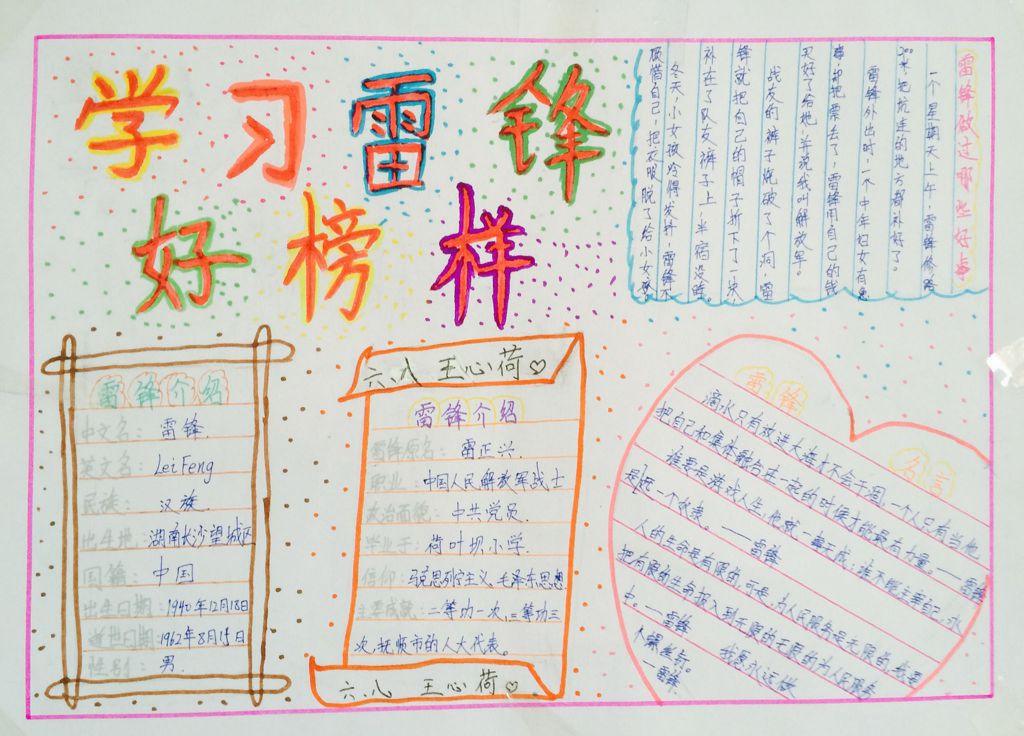 学习雷锋
好榜样
雷锋做过哪些好事
一个星期天上午,雷锋修路
200米,把坑连的地方都补好了。
雷锋外出时,一个中年妇女有急
事却把票丢了,雷锋用自己的钱
买好了给她,并说我叫解放军。
战友的裤子烧破了个洞,雷
锋就把自己的帽子折下了一块,
补在了队友裤子上,半宿没睡。
冬天,小女孩冷得发抖,雷锋不
顾惜自己,把衣服脱了给小女孩。
雷锋介绍
中文名:雷锋
英文名:LeiFeng
民族:汉族
出生地:湖南长沙望城区
国籍:中国
出生日期:1940年12月18日
逝世日期:1962年8月15日
性别:男.
六.八 王心荷♡
雷锋介绍
雷锋原名:雷正兴.
职业:中国人民解放军战士
政治面貌:中共党员.
毕业于:荷叶坝小学.
信仰:马克思列宁主义、毛泽东思想
主要成就:二等功一次,三等功三
次,抚顺市的人大代表。
六.八 王心荷♡
雷锋
名言
滴水只有放进大海才不会干涸,一个人只有当他
把自己和集体融合在一起的时候才能最有力量。——雷锋
谁要是游戏人生,他就一事无成;谁不能主宰自己,永
远是一个奴隶。——雷锋
人的生命是有限的,可是,为人民服务是无限的,我要
把有限的生命投入到无限的无限的为人民服务
中。——雷锋
我愿永远做
个螺丝钉。
—雷锋